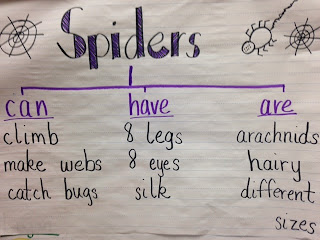 Spiders
can have are
climb 8 legs arachnids
make webs 8 eyes hairy
catch bugs silk different
sizes